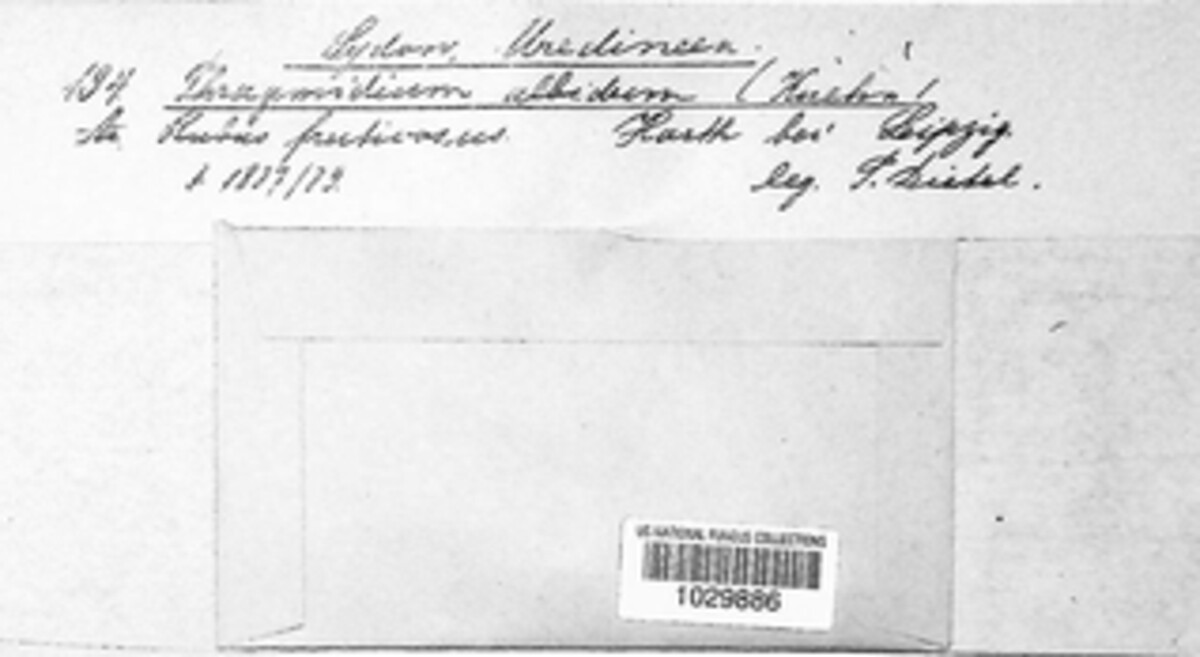 Sydow, Uredineen.
Phragmidium albidum (Kuehn)
Rubus fruticosus. Harth bei Leipzig.
leg. P. Dietel.
US NATIONAL FUNGUS COLLECTIONS
1029886